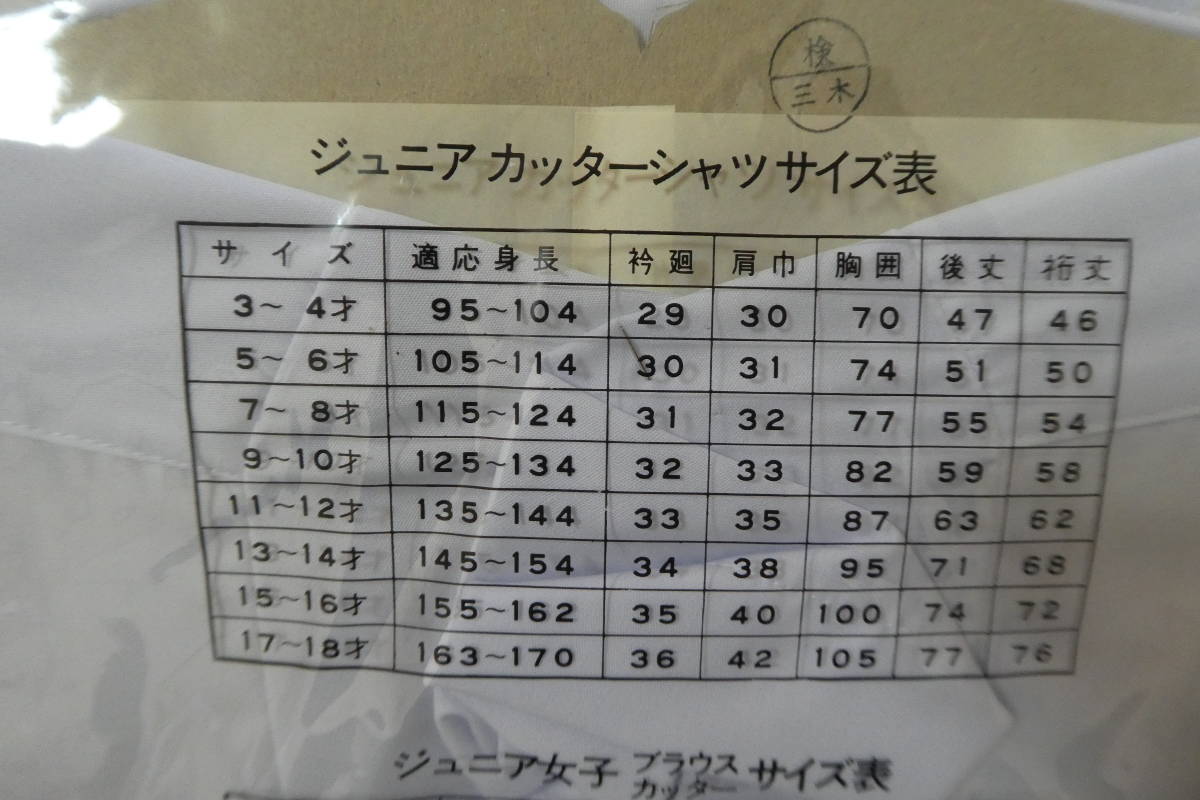 検
三木
ジュニア カッターシャツ サイズ表
サイズ 適応身長 衿廻 肩巾 胸囲 後丈 裄丈
3～4才 95～104 29 30 70 47 46
5～6才 105～114 30 31 74 51 50
7～8才 115～124 31 32 77 55 54
9～10才 125～134 32 33 82 59 58
11～12才 135～144 33 35 87 63 62
13～14才 145～154 34 38 95 71 68
15～16才 155～162 35 40 100 74 72
17～18才 163～170 36 42 105 77 76
ジュニア女子 ブラウス カッター サイズ表